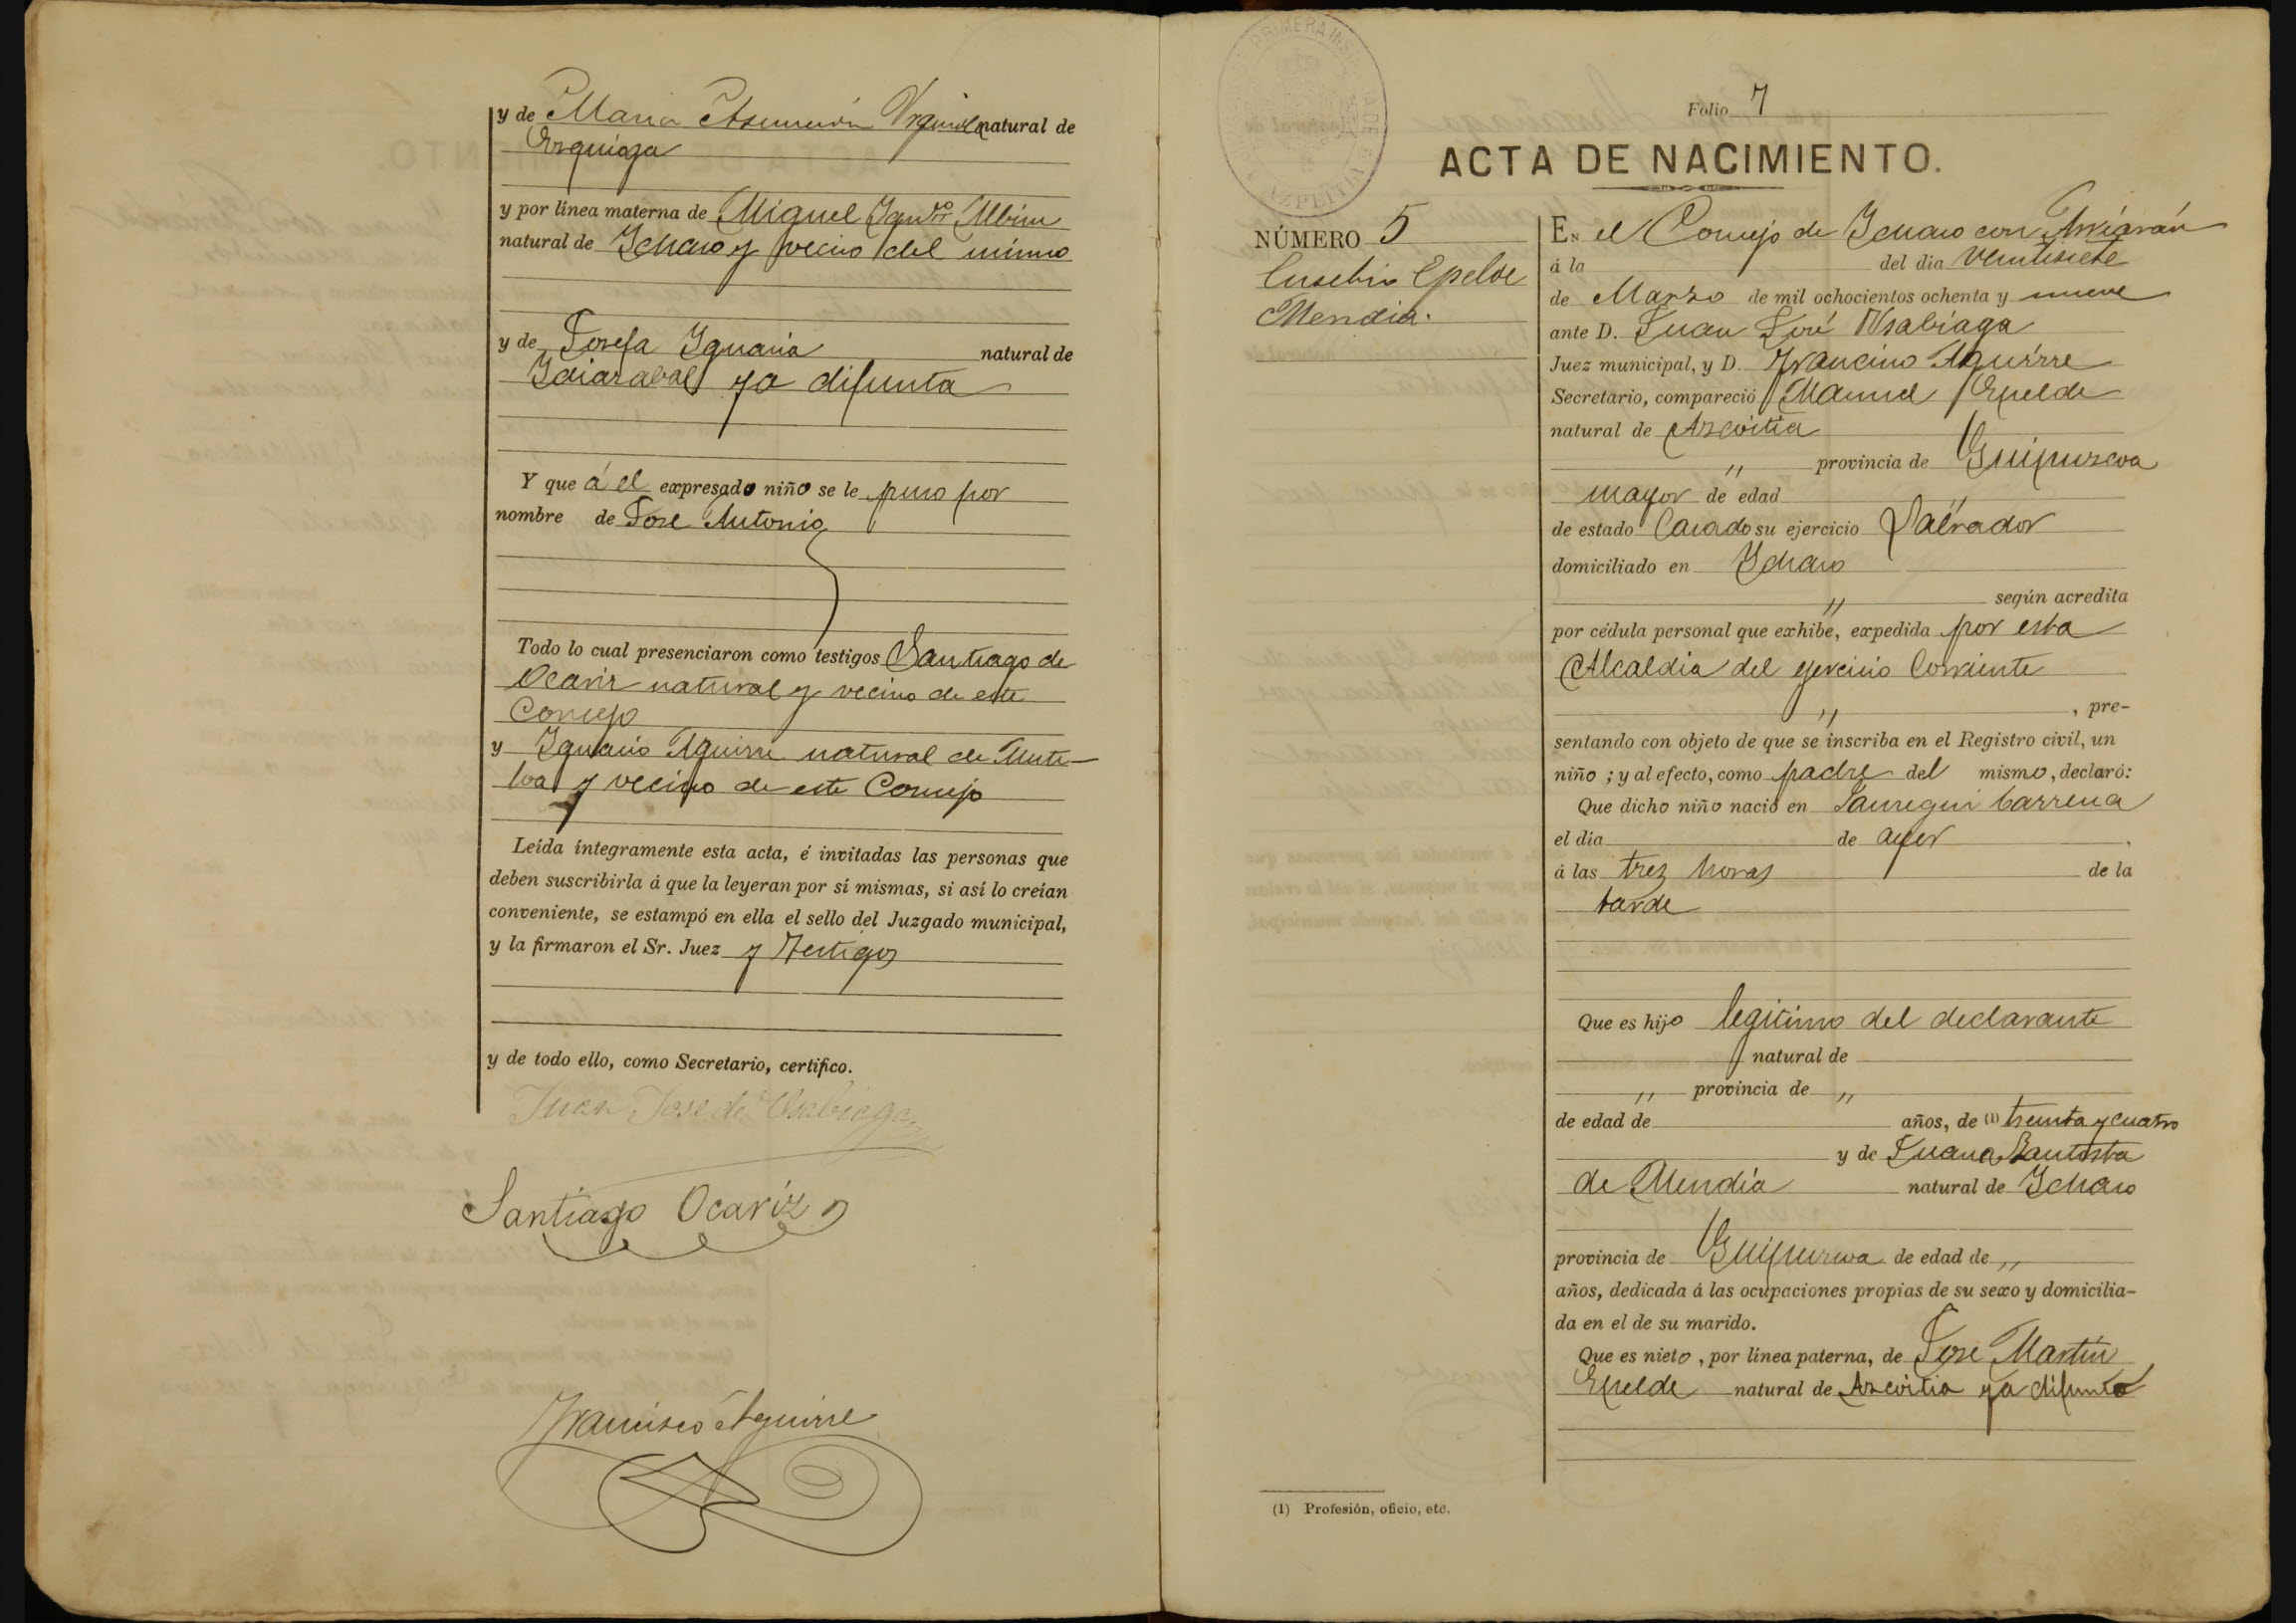 y de Maria Asunción Urquiola natural de
Ezquioga
y por línea materna de Miguel Ign.co Albisu
natural de Ichaso y vecino del mismo
y de Josefa Ignacia natural de
Idiazabal ya difunta
Y que á el expresado niño se le puso por
nombre de Jose Antonio
Todo lo cual presenciaron como testigos Santiago de
Ocariz natural y vecino de este
Concejo
y Ignacio Aguirre natural de Mute-
loa y vecino de este Concejo
Leída íntegramente esta acta, é invitadas las personas que
deben suscribirla á que la leyeran por sí mismas, si así lo creían
conveniente, se estampó en ella el sello del Juzgado municipal,
y la firmaron el Sr. Juez y Testigos
y de todo ello, como Secretario, certifico.
Juan Jose de Usabiaga
Santiago Ocariz
Francisco Aguirre
PRIMERA INS
AZPEITIA
Folio 7
ACTA DE NACIMIENTO.
NÚMERO 5
Eusebio Epelde
Mendia.
En el Concejo de Ichaso con Arriarán
á la del dia Veintisiete
de Marzo de mil ochocientos ochenta y nueve
ante D. Juan José Usabiaga
Juez municipal, y D. Francisco Aguirre
Secretario, compareció Manuel Epelde
natural de Azcoitia
" provincia de Guipuzcoa
mayor de edad
de estado Casado su ejercicio Labrador
domiciliado en Ichaso
" según acredita
por cédula personal que exhibe, expedida por esta
Alcaldia del ejercicio Corriente
" , pre-
sentando con objeto de que se inscriba en el Registro civil, un
niño ; y al efecto, como padre del mismo, declaró:
Que dicho niño nació en Jauregui barrena
el día de ayer .
á las trez horas de la
tarde
Que es hijo legitimo del declarante
natural de
" provincia de "
de edad de años, de (1) treinta y cuatro
y de Juana Bautista
de Mendia natural de Ichaso
provincia de Guipuzcoa de edad de "
años, dedicada á las ocupaciones propias de su sexo y domicilia-
da en el de su marido.
Que es nieto , por línea paterna, de Jose Martin
Epelde natural de Azcoitia ya difunto
(1) Profesión, oficio, etc.